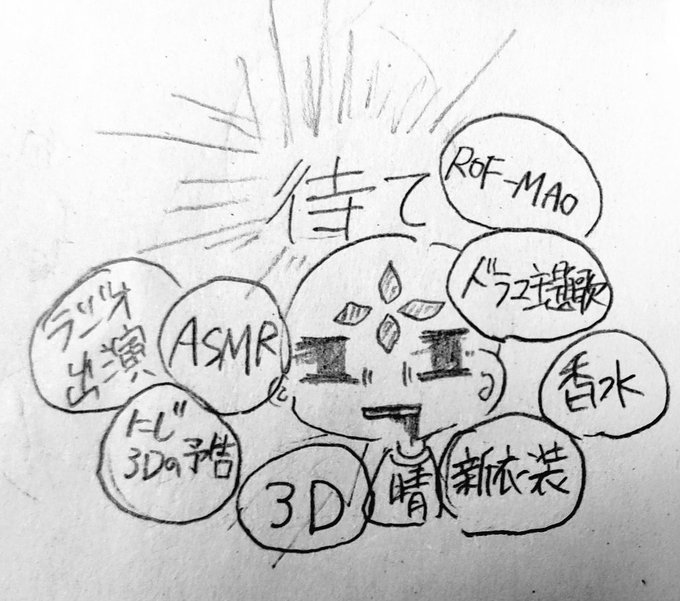 待て
ROF-MAO
ドラマ主題歌
香水
新衣装
晴
3D
にじ
3Dの予告
ASMR
ラジオ
出演